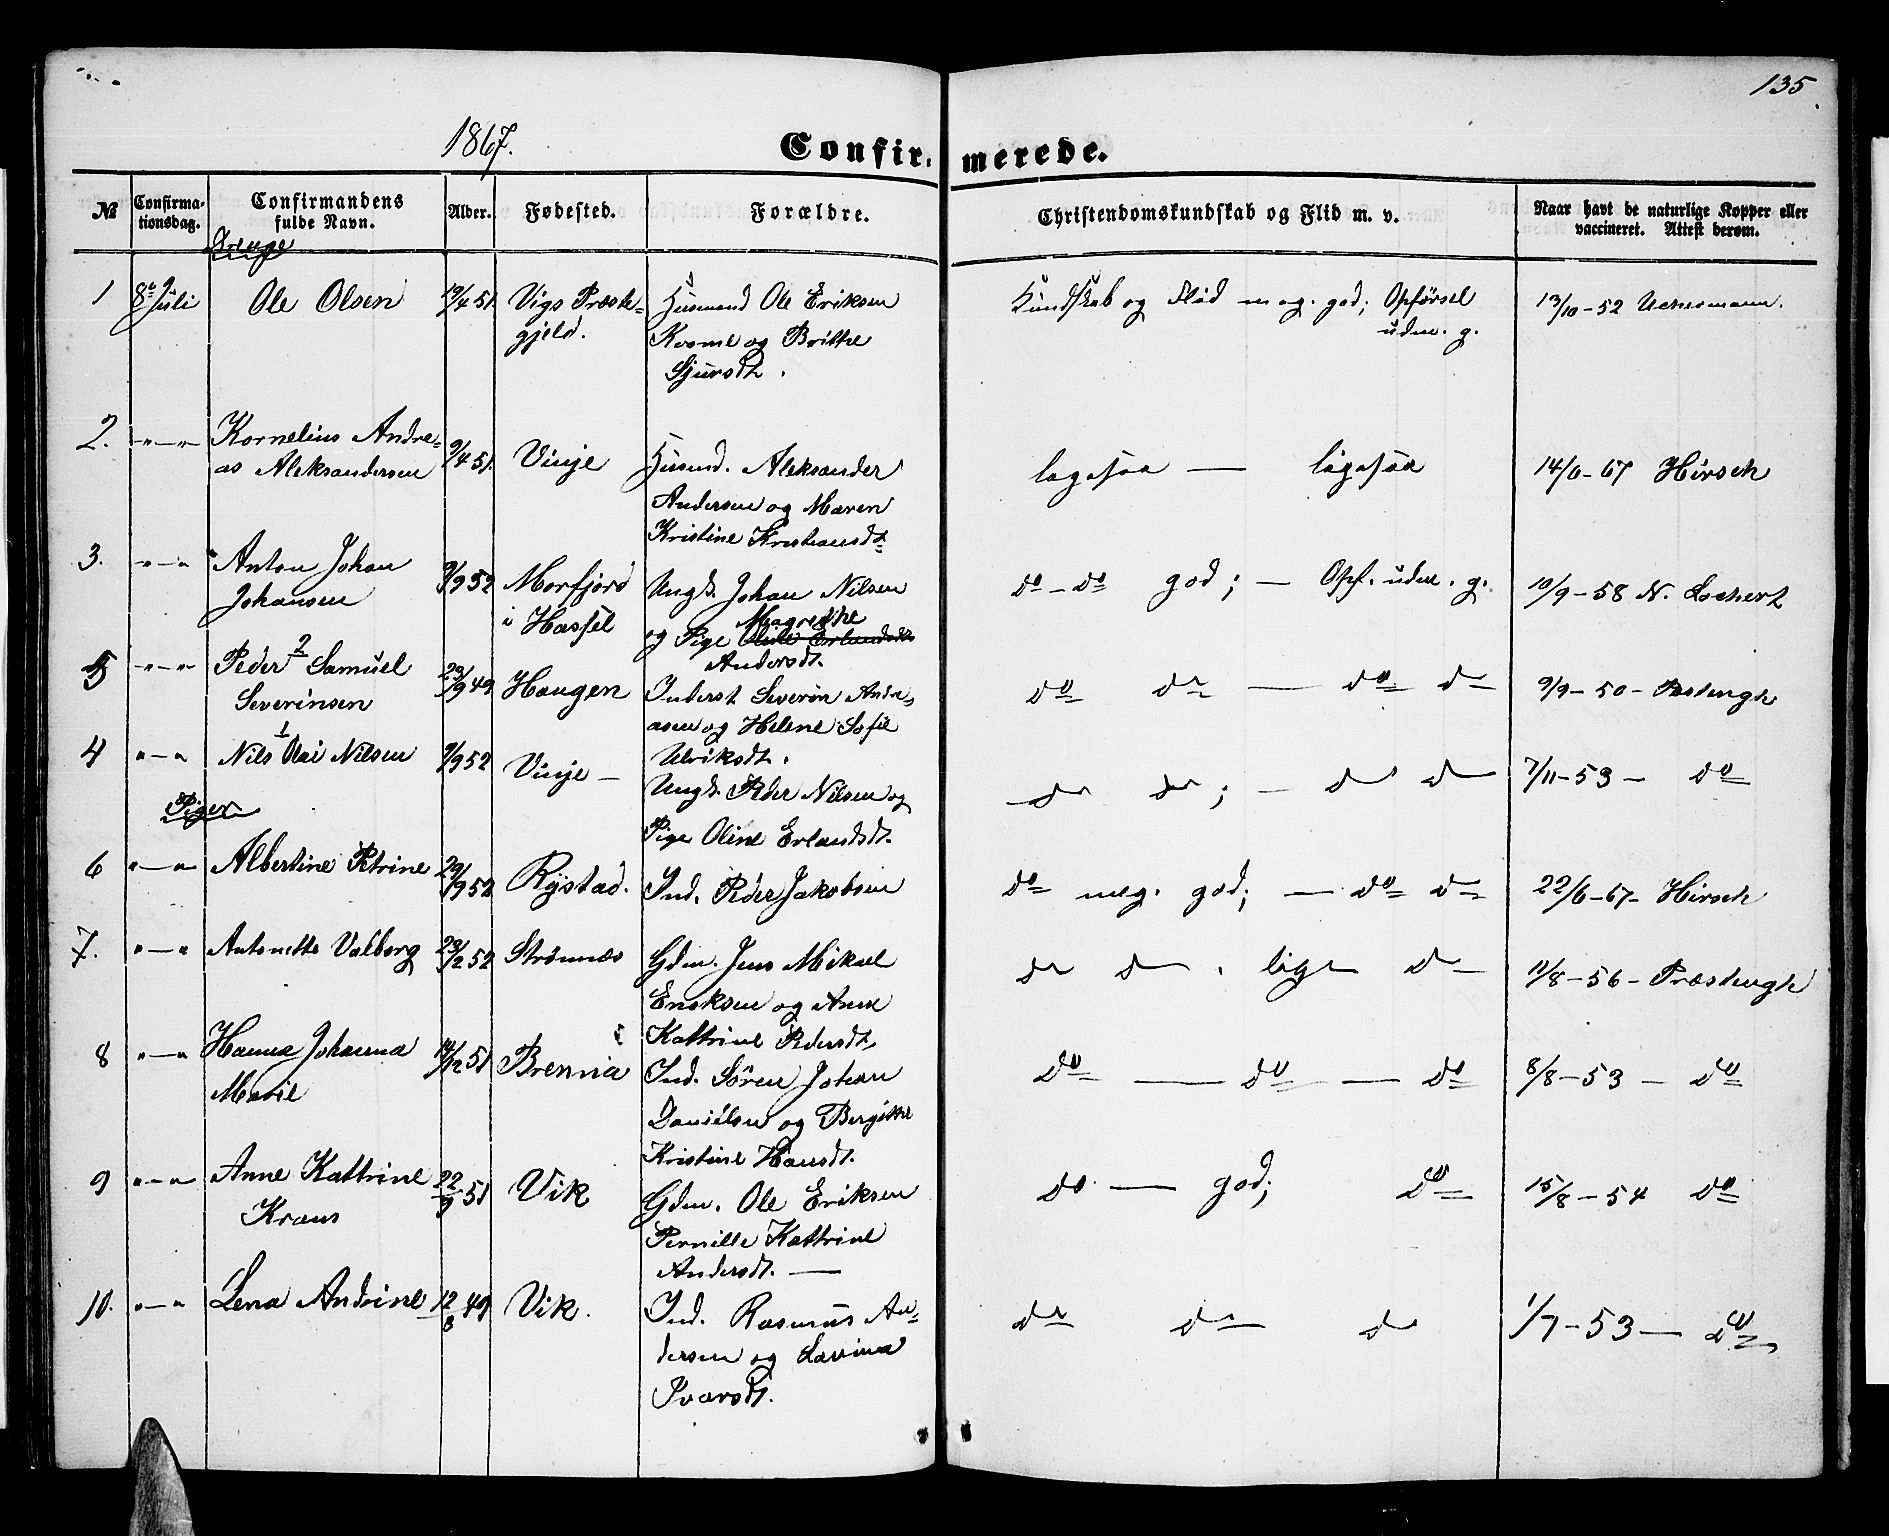 135.
1867.
Confir- merede.
№ Confirma-tionsdag. Confirmandens fulde Navn. Alder. Fødested. Forældre. Christendomskundskab og Flid m. v. Naar havt de naturlige Kopper eller vaccineret. Attest derom.
Drenge
1 8de Juli Ole Olsen 19/4 51. Vigs Præste- Husmand Ole Eriksen Kundskab og Flid meg. god; Opførsel 13/10-52 Uchermann.
gjeld. og Brithe udm. g.
Sjursdt.
2. -"-" Kornelius Andre= 9/4 51. Vinje Husmd. Aleksander ligesaa — ligesaa 14/6-67 Hirsch
as Aleksandersen
Andersen og Maren
Kristine Kristiansdt
3. -"-" Anton Johan 9/9 52 Morfjord Ungk. Johan Nilsen do - do god; — Opf. udm. g. 19/9-58 N. Lochert
Johansen i Hassel og Pige Magrethe
Andersdt.
5 -"-" Peder 2 Samuel 29/9 49 Haugen Inderst Severin Andre- do do — do do 9/9-50 -
Severinsen asen og Helene Sofie
Ulriksdt.
4 "-" Nils 1 Olai Nilsen 9/9 52 Vinje — Ungk. Peder Nilsen og do do; — do do 7/11-53 - do
Pige Oline Erlandsdt.
Piger
6 "-" Albertine Petrine 29/9 52 Rystad. Ind. Peder Jakobsen do meg. god; — do do 22/6-67- Hirsch
7. "-" Antonette Valborg 23/2 52 Strømnæs Gdm. Jens Mikael do do . lige do 11/8-56-
Eriksen og Anne
Kattrine Pedersdt.
8 "-" Hanna Johanna 14/12 51 Brenna Ind. Søren Johan do — do — do 8/8-53 - do
Marie Danielsen og Bergitthe
Kristine Hansdt.
9 "-" Anne Kattrine 22/9 51 Vik Gdm. Ole Eriksen do — god; do 15/8-54 do
Kraus Pernille Kattrine
Andersdt. —
10. "-" Lena Andrine 12/8 49 Vik. Ind. Rasmus An- do do do 1/7-53 — do
dersen og Lavina
Ivarsdt.